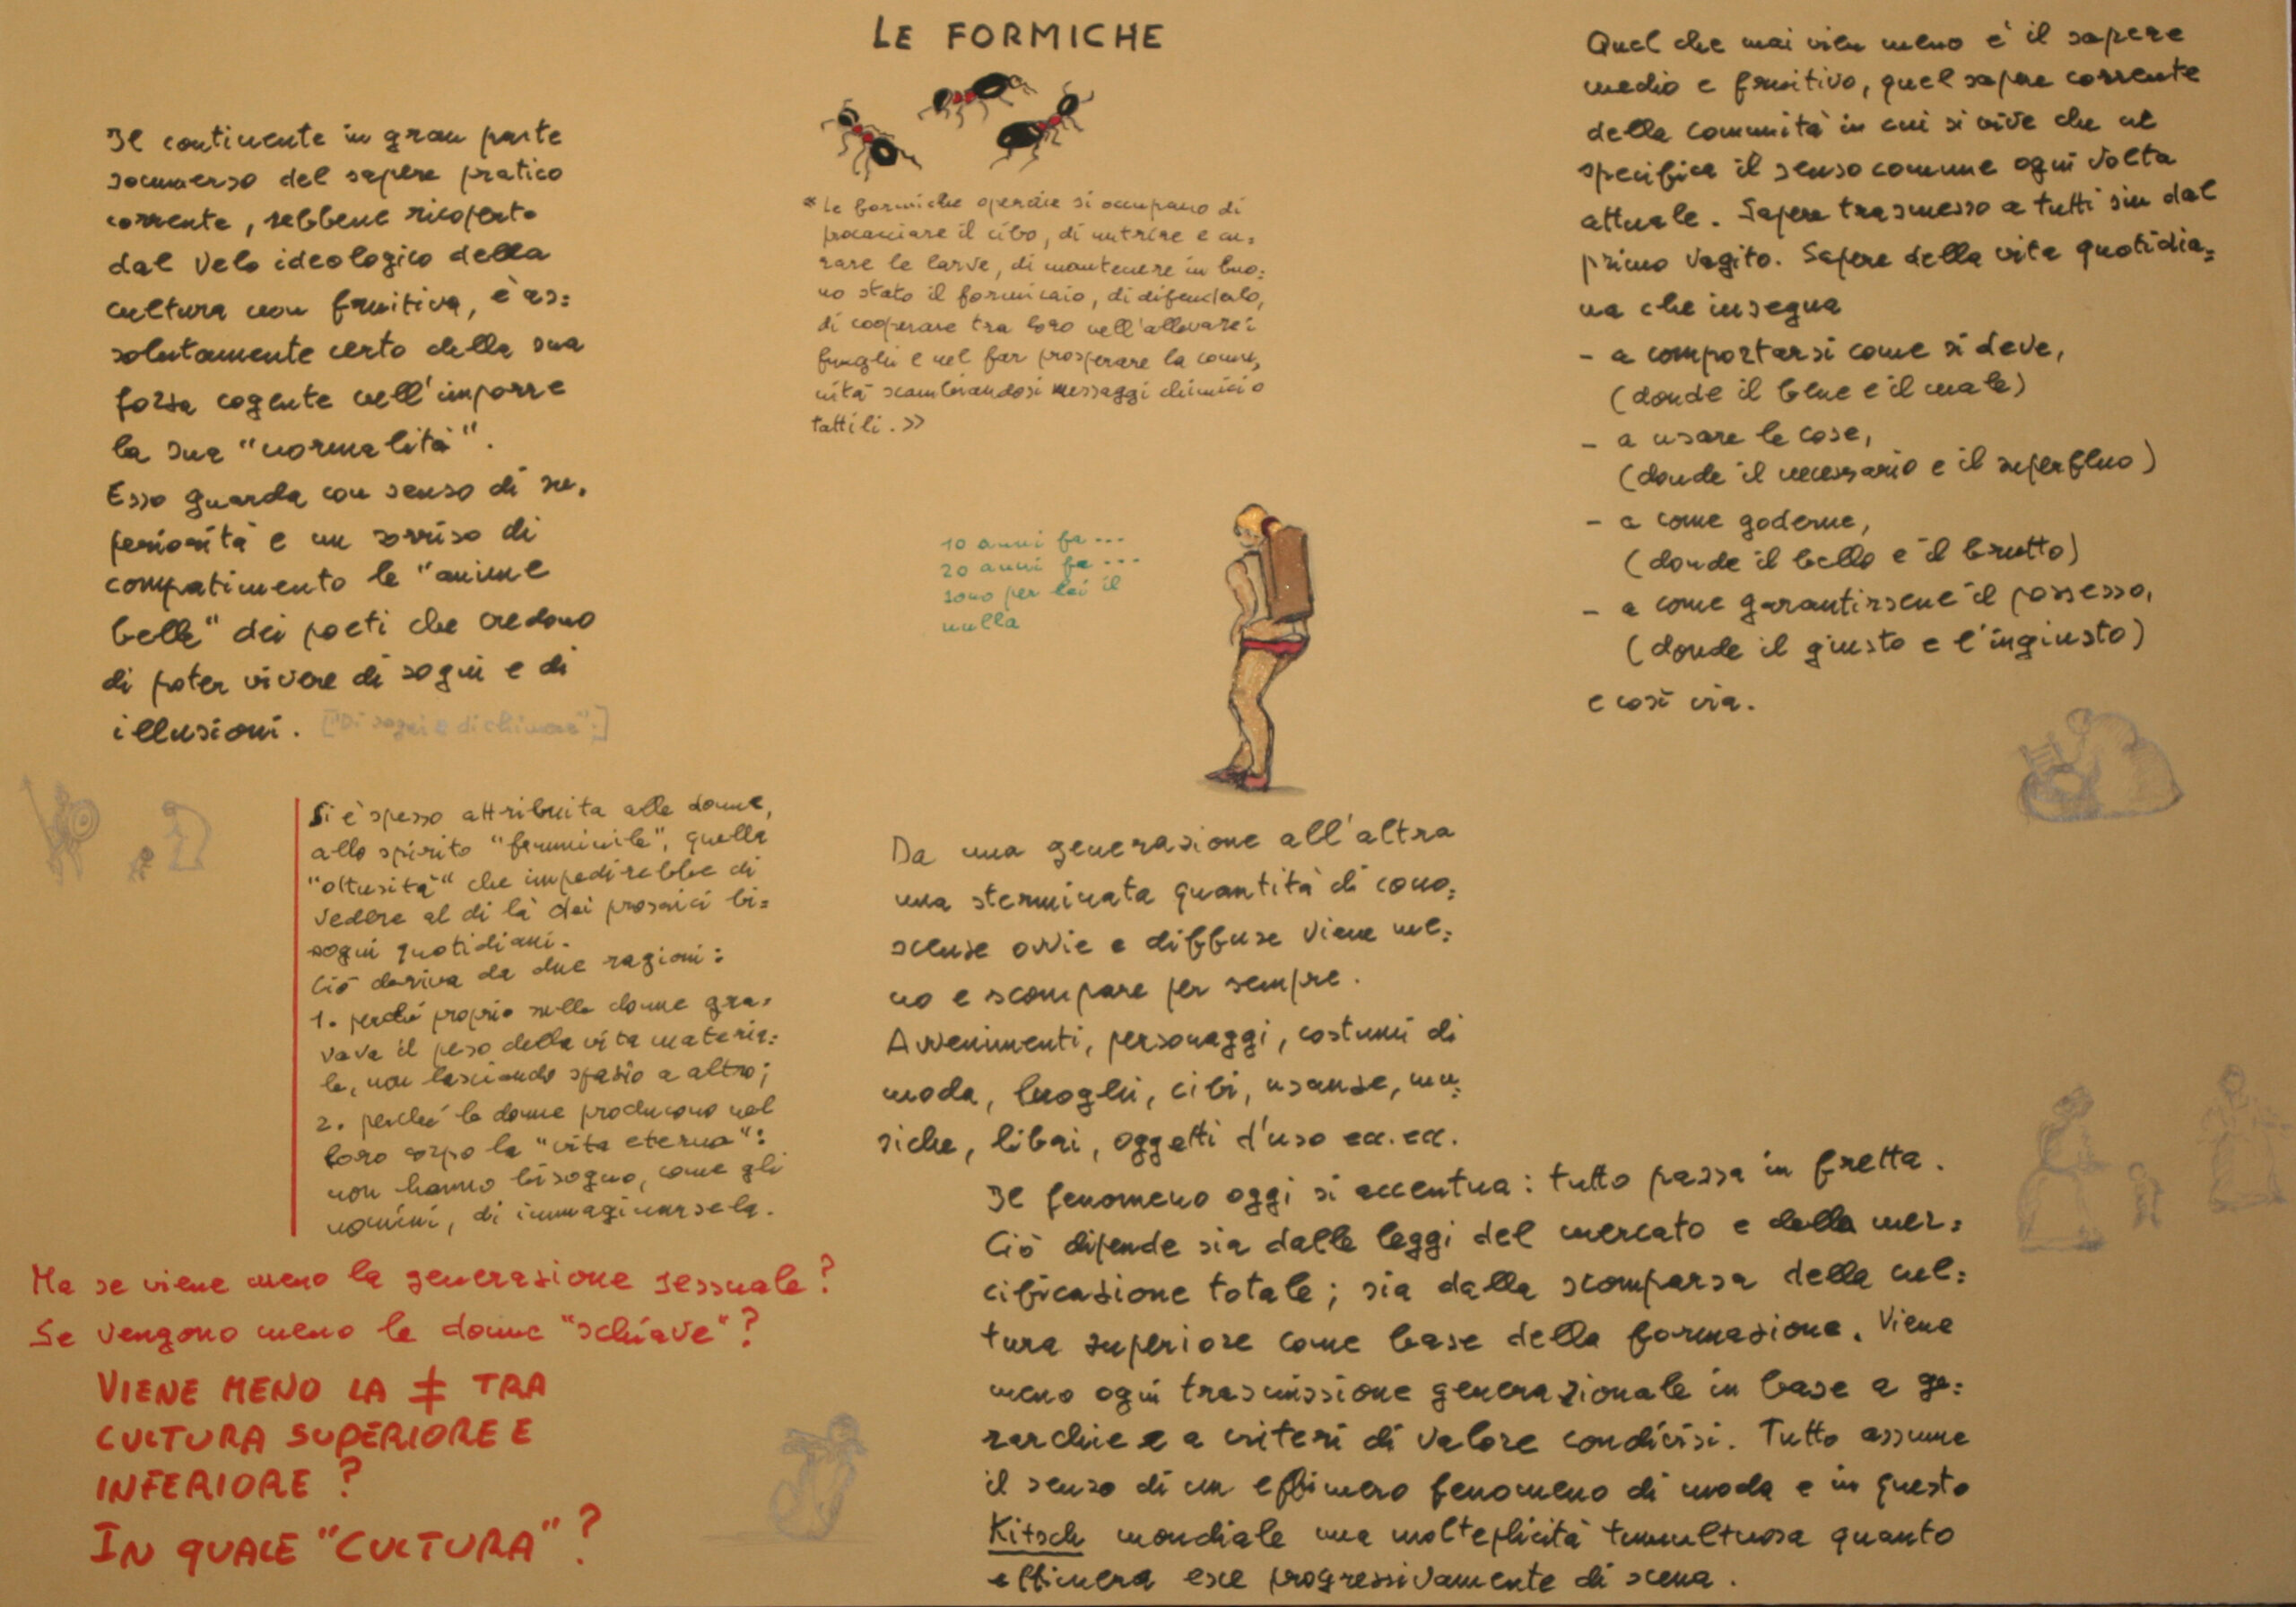 LE FORMICHE
Il continente in gran parte
sommerso del sapere pratico
corrente, sebbene ricoperto
dal velo ideologico della
cultura non fruitiva, è as=
solutamente certo della sua
forza cogente nell'imporre
la sua "normalità".
Esso guarda con senso di su=
periorità e un sorriso di
compatimento le "anime
belle" dei poeti che credono
di poter vivere di sogni e di
illusioni. ["Di sogni e di chimere".]
Si è spesso attribuita alle donne,
allo spirito "femminile", quella
"ottusità" che impedirebbe di
vedere al di là dei prosaici bi=
sogni quotidiani.
Ciò deriva da due ragioni:
1. perché proprio sulle donne gra=
vava il peso della vita materia=
le, non lasciando spazio a altro;
2. perché le donne producono nel
loro corpo la "vita eterna":
non hanno bisogno, come gli
uomini, di immaginarsela.
Ma se viene meno la generazione sessuale?
Se vengono meno le donne "schiave"?
VIENE MENO LA ≠ TRA
CULTURA SUPERIORE E
INFERIORE?
IN QUALE "CULTURA"?
"Le formiche operaie si occupano di
procacciare il cibo, di nutrire e cu=
rare le larve, di mantenere in buo=
no stato il formicaio, di difenderlo,
di cooperare tra loro nell'allevare i
funghi e nel far prosperare la comu=
nità scambiandosi messaggi chimici o
tattili.>>
10 anni fa...
20 anni fa...
sono per lei il
nulla
Da una generazione all'altra
una sterminata quantità di cono=
scenze ovvie e diffuse viene me=
no e scompare per sempre.
Avvenimenti, personaggi, costumi di
moda, luoghi, cibi, usanze, mu=
siche, libri, oggetti d'uso ecc. ecc.
Il fenomeno oggi si accentua: tutto passa in fretta.
Ciò dipende sia dalle leggi del mercato e della mer=
cificazione totale; sia dalla scomparsa della cul=
tura superiore come base della formazione. Viene
meno ogni trasmissione generazionale in base a ge=
rarchie e a criteri di valore condivisi. Tutto assume
il senso di un effimero fenomeno di moda e in questo
Kitsch mondiale una molteplicità tumultuosa quanto
effimera esce progressivamente di scena.
Quel che mai vien meno è il sapere
medio e fruitivo, quel sapere corrente
della comunità in cui si vive che ne
specifica il senso comune ogni volta
attuale. Sapere trasmesso a tutti sin dal
primo vagito. Sapere della vita quotidia=
na che insegna
- a comportarsi come si deve,
(donde il bene e il male)
- a usare le cose,
(donde il necessario e il superfluo)
- a come goderne,
(donde il bello e il brutto)
- a come garantirsene il possesso,
(donde il giusto e l'ingiusto)
e così via.